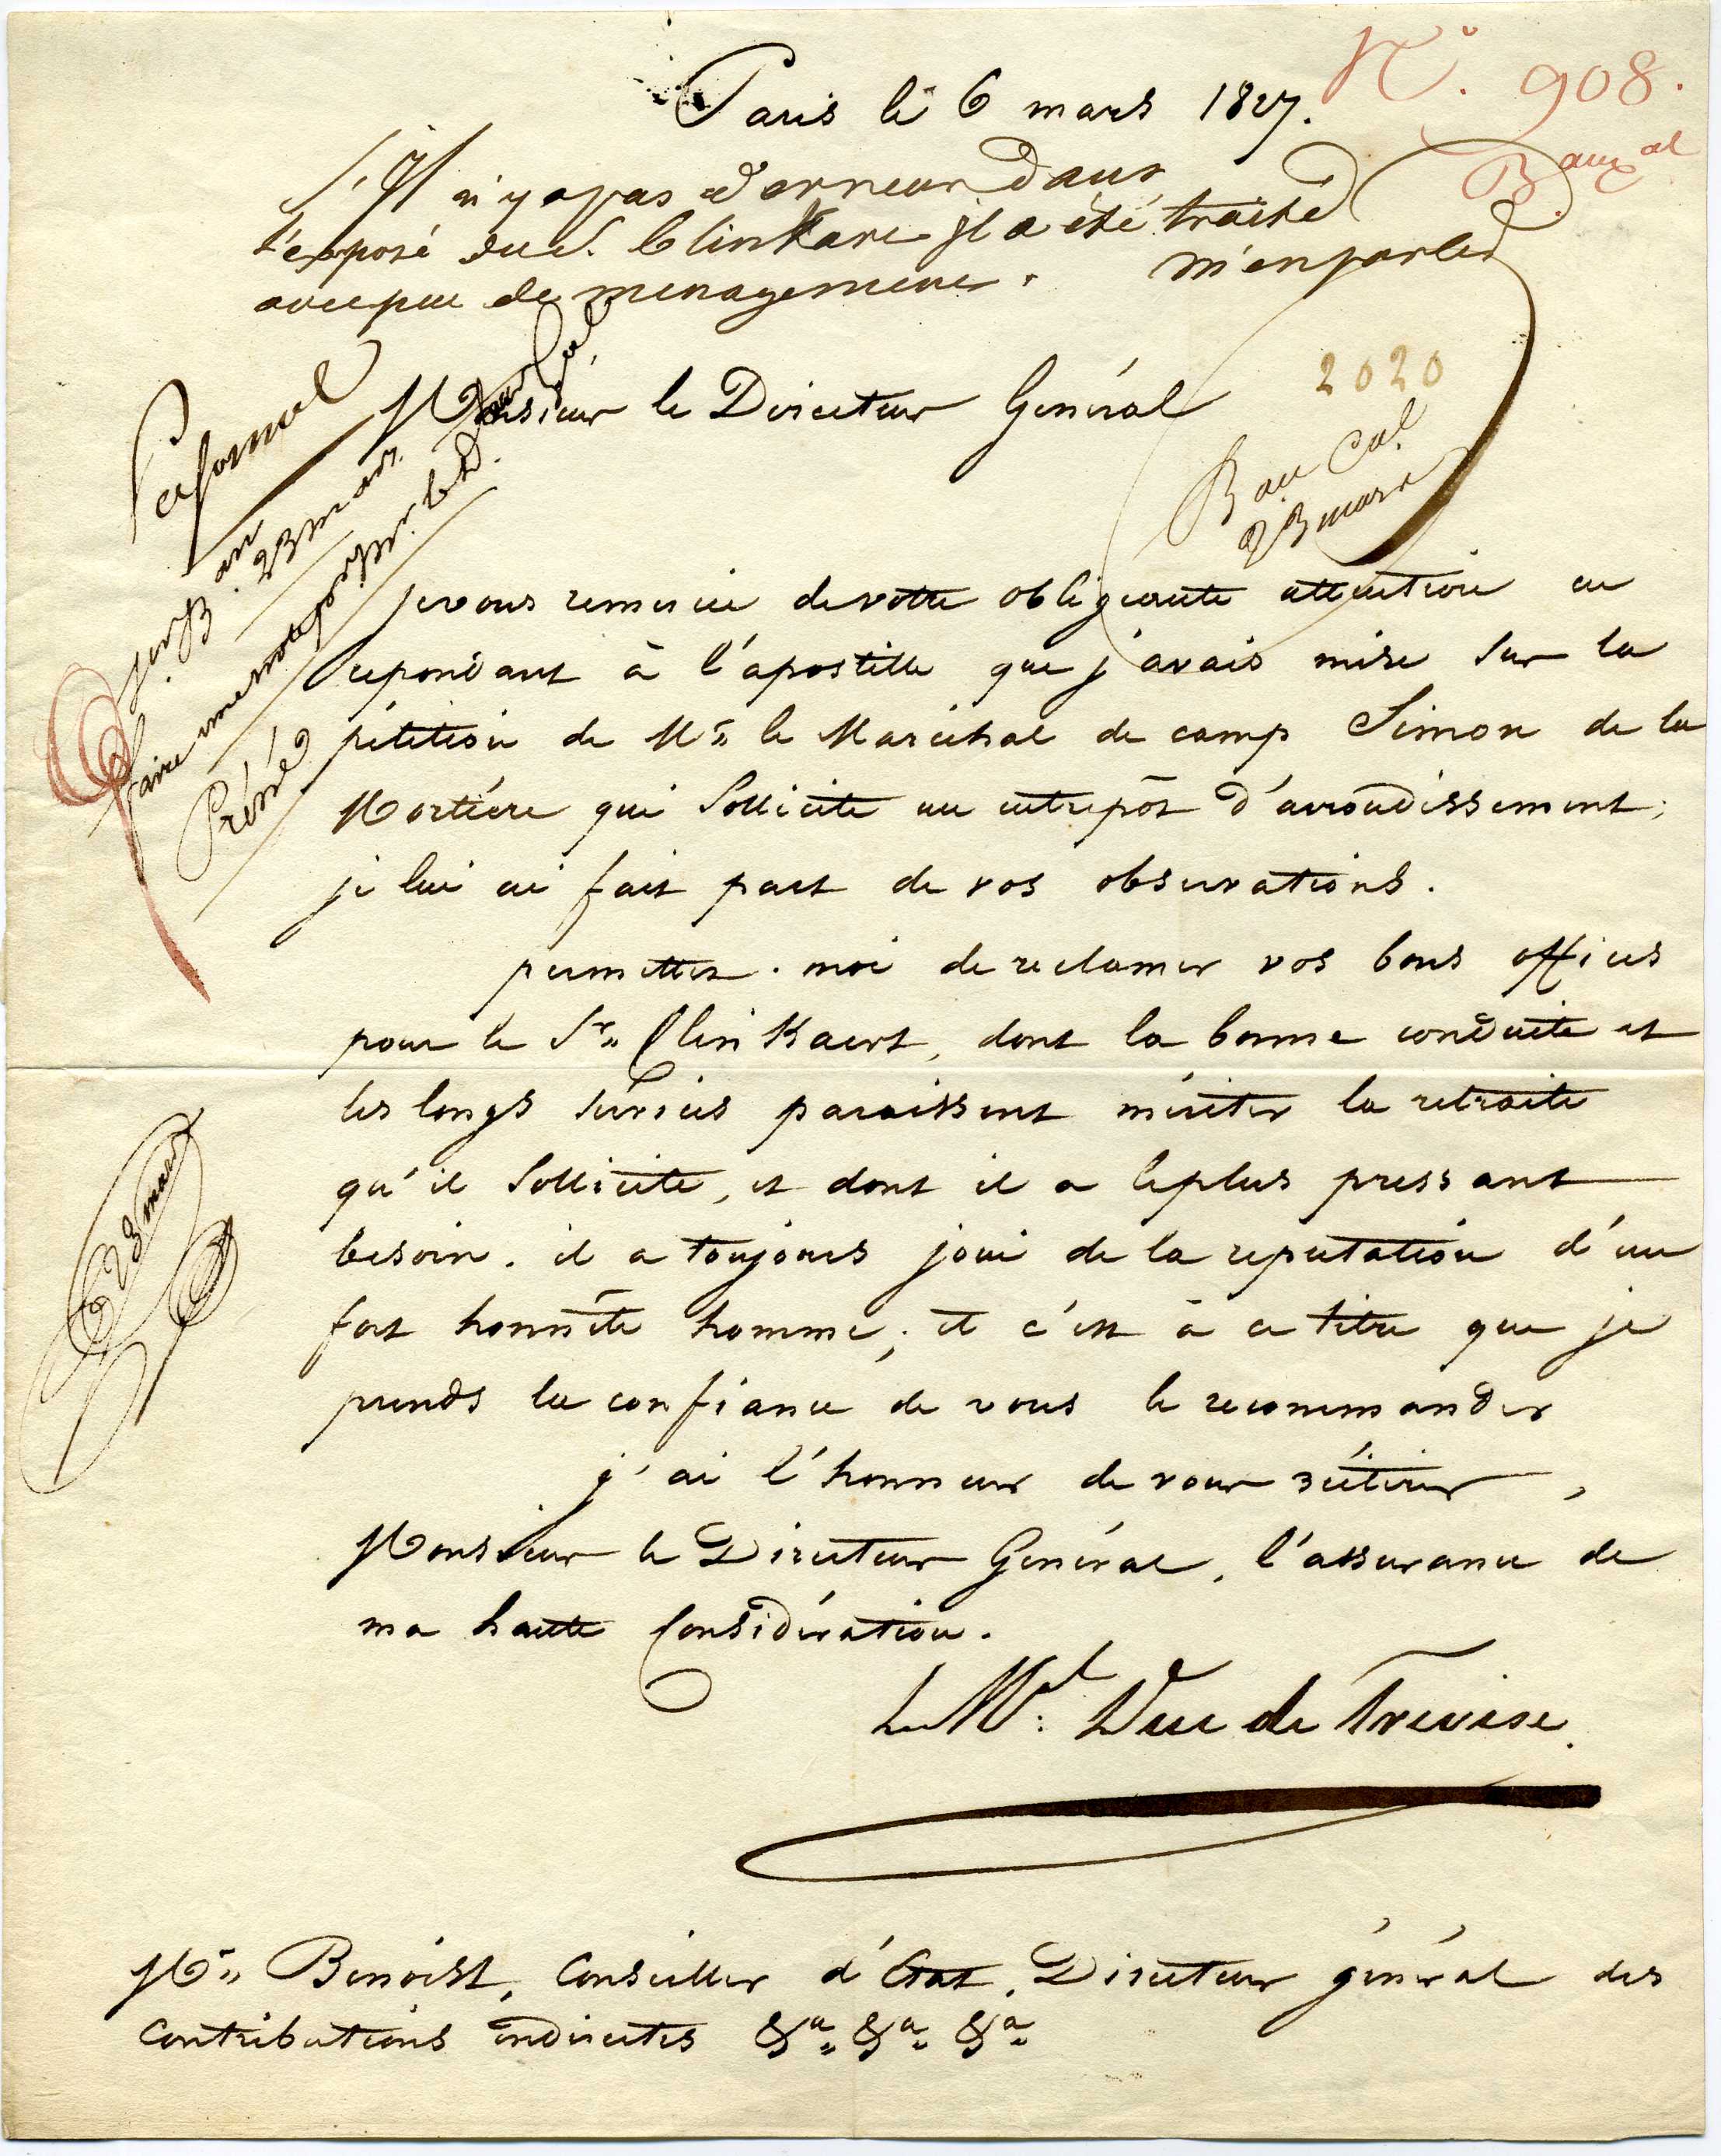 N.º 908.
Paris le 6 mars 1827.
Bau al
S'Il n'y a pas d'erreur dans
l'exposé du S. Clinkare il a été traité
avec peu de menagement. M'en parler
2020
Bau Cal
23 mars
Monsieur le Directeur Général
23 mars
faire une note
je vous remercie de votre obligeante attention en
repondant à l'apostille que j'avais mise sur la
pétition de Mr. le Maréchal de camp Simon de la
Mortière qui sollicite un entrepôt d'arrondissement;
je lui ai fait part de vos observations.
permettez-moi de reclamer vos bons offices
pour le Sr. Clinkaert, dont la bonne conduite et
les longs services paraissent mériter la retraite
qu'il sollicite, et dont il a le plus pressant
besoin. il a toujours joui de la reputation d'un
fort honnête homme; et c'est à ce titre que je
prends la confiance de vous le recommander
23 mars
j'ai l'honneur de vous réitérer,
Monsieur le Directeur Général, l'assurance de
ma haute Considération.
Le Mal. Duc de Trevise.
Mr. Benoist, Conseiller d'Etat, Directeur général des
Contributions indirectes &a &a &a